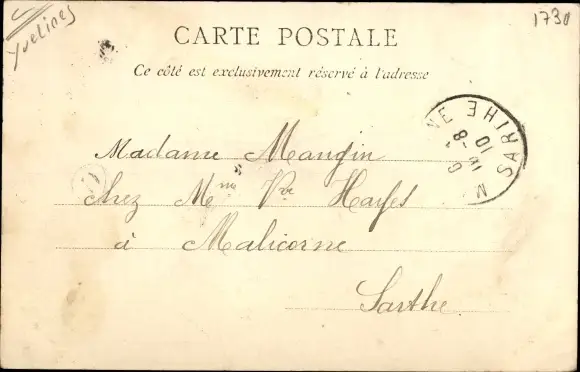 Yvelines
1730
CARTE POSTALE
Ce côté est exclusivement réservé à l'adresse
Madame Mangin
chez Mme Vve Hayes
à Malicorne
Sarthe
SARTHE